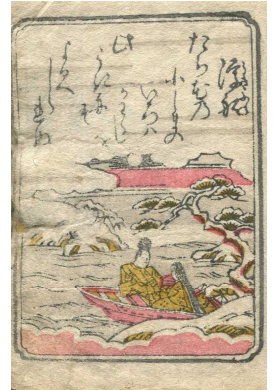 浮船
たちはなの
小しまの
いろハ
かはらし
此
うきふね
そ
ゆくへ
しられぬ